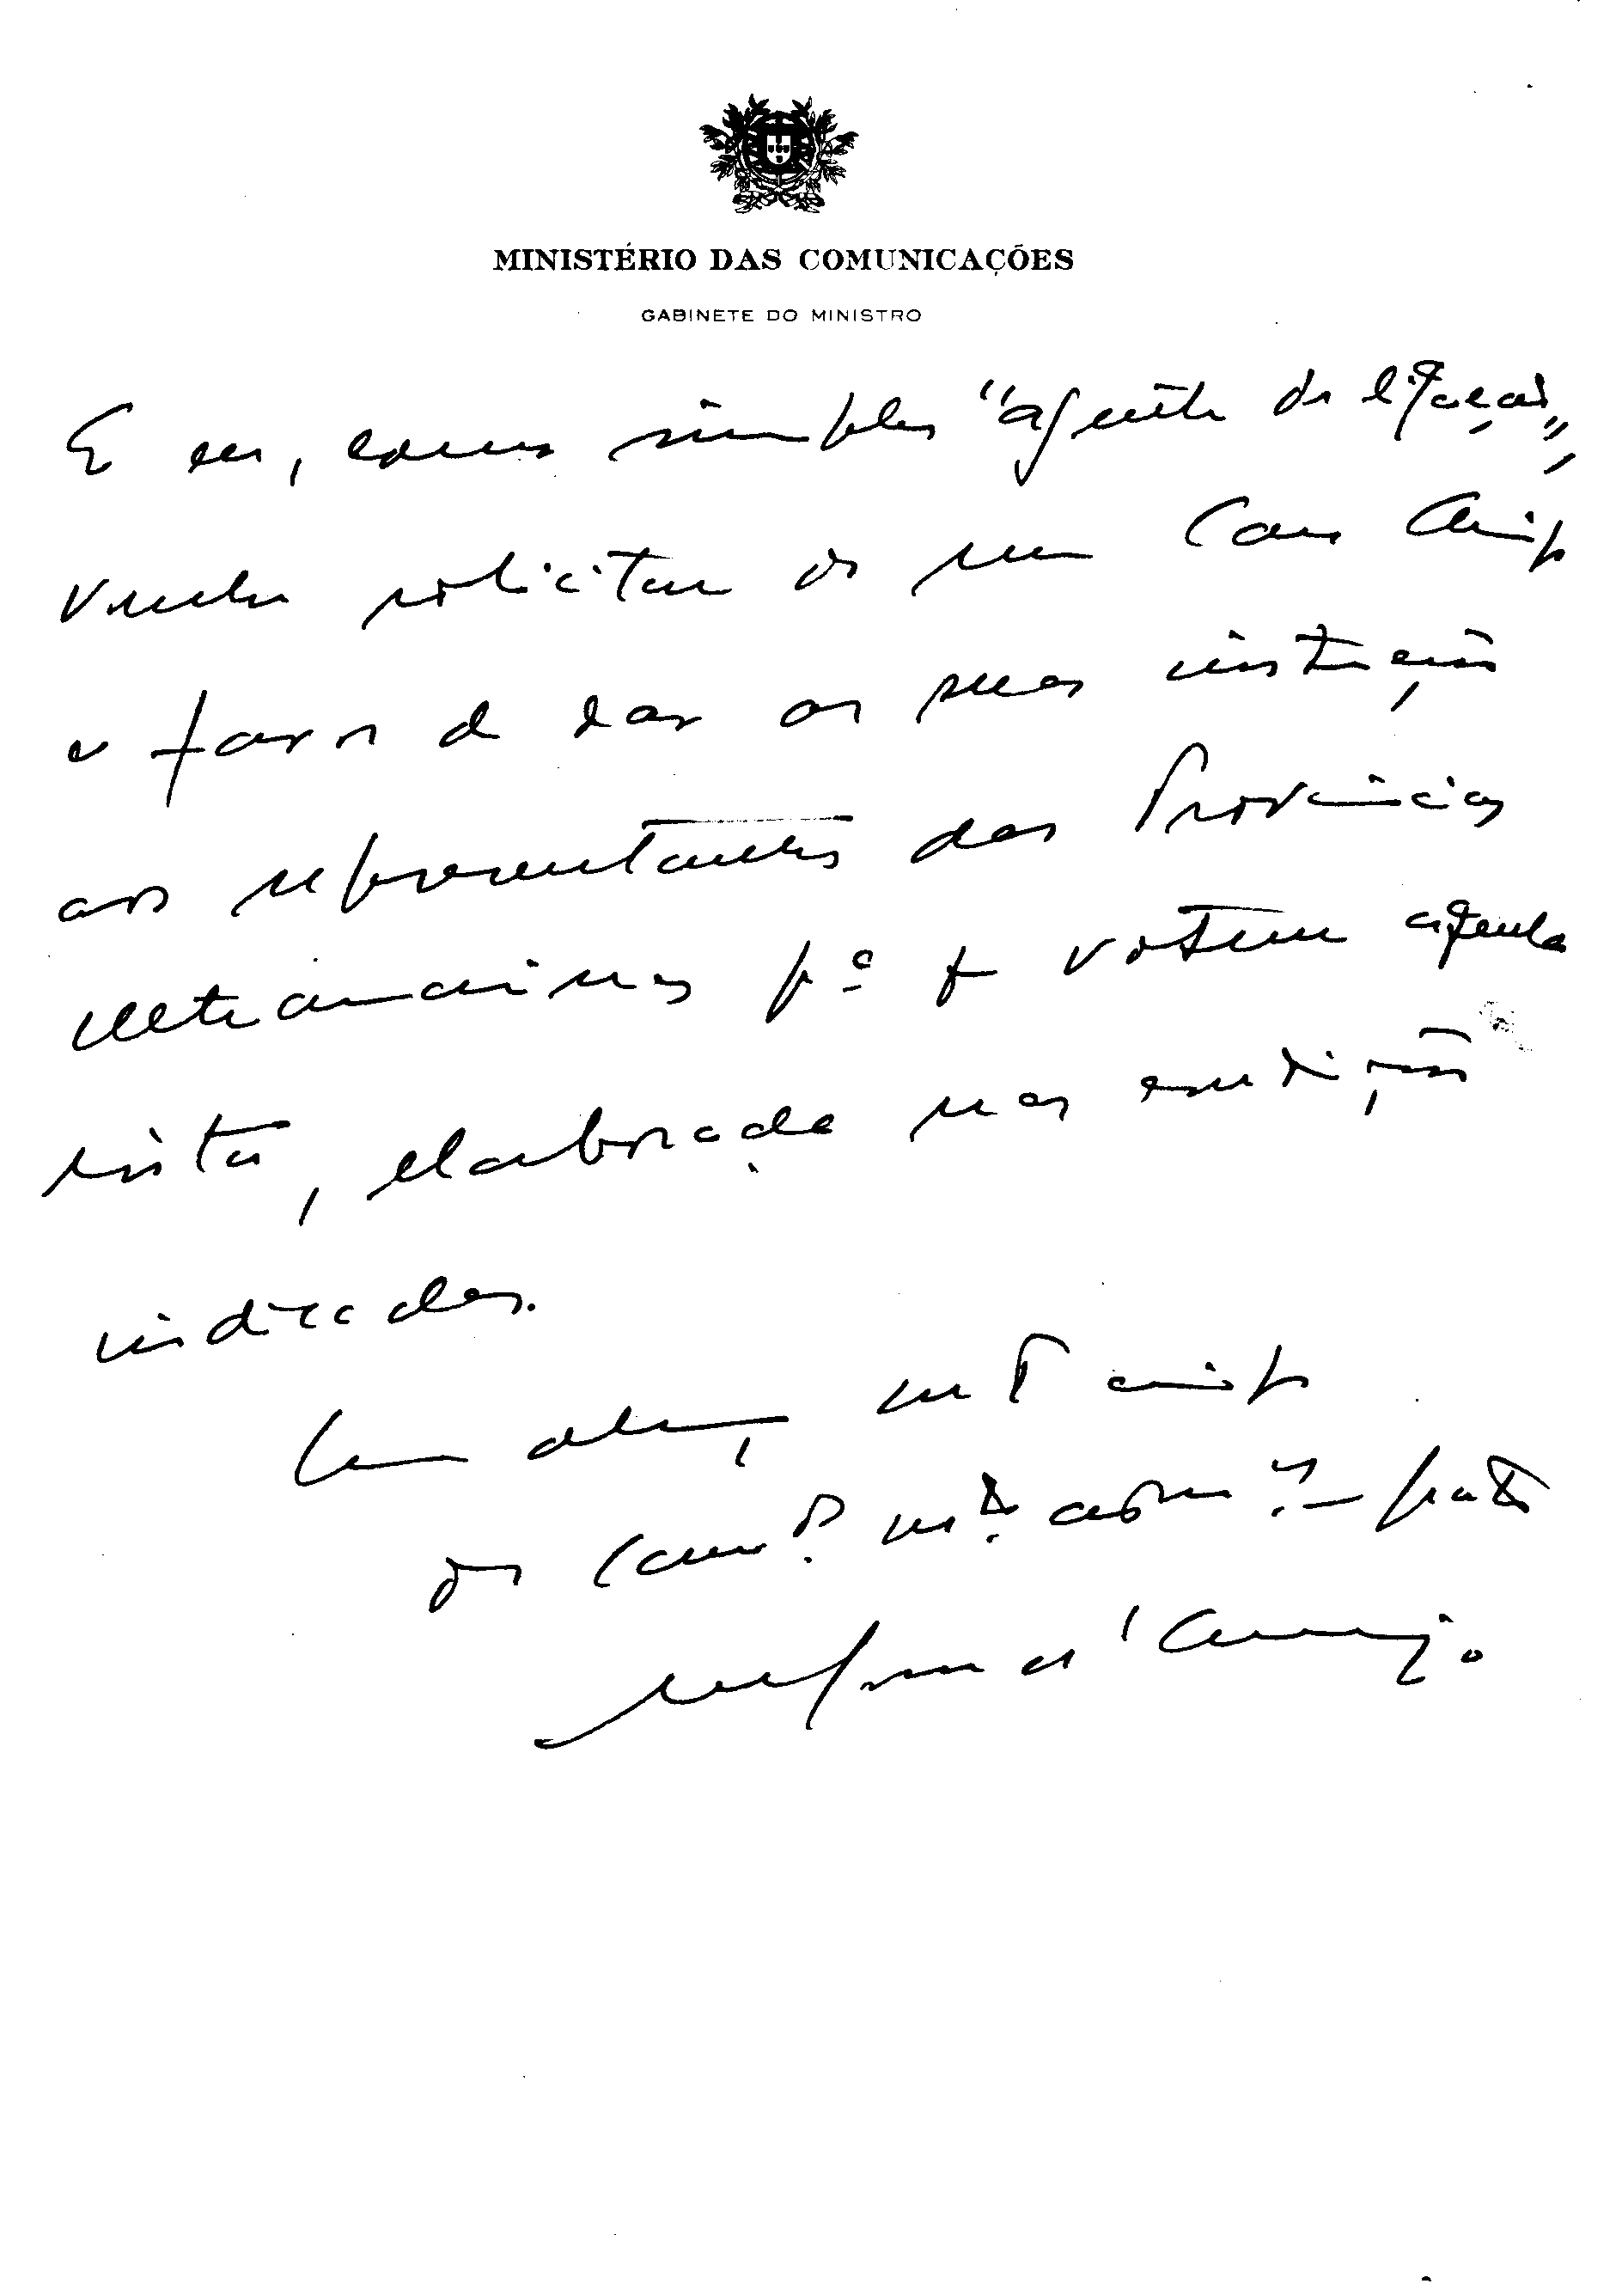 MINISTÉRIO DAS COMUNICAÇÕES
GABINETE DO MINISTRO
E eu, como simples "agente de ligação",
venho solicitar do meu Caro Amigo
o favor de dar as suas instruções
aos representantes das Províncias
ultramarinas pª q votem aquela
lista, elaborada nas condições
indicadas.
Um abraço mtº amigo
do camª mtº admºr e grato